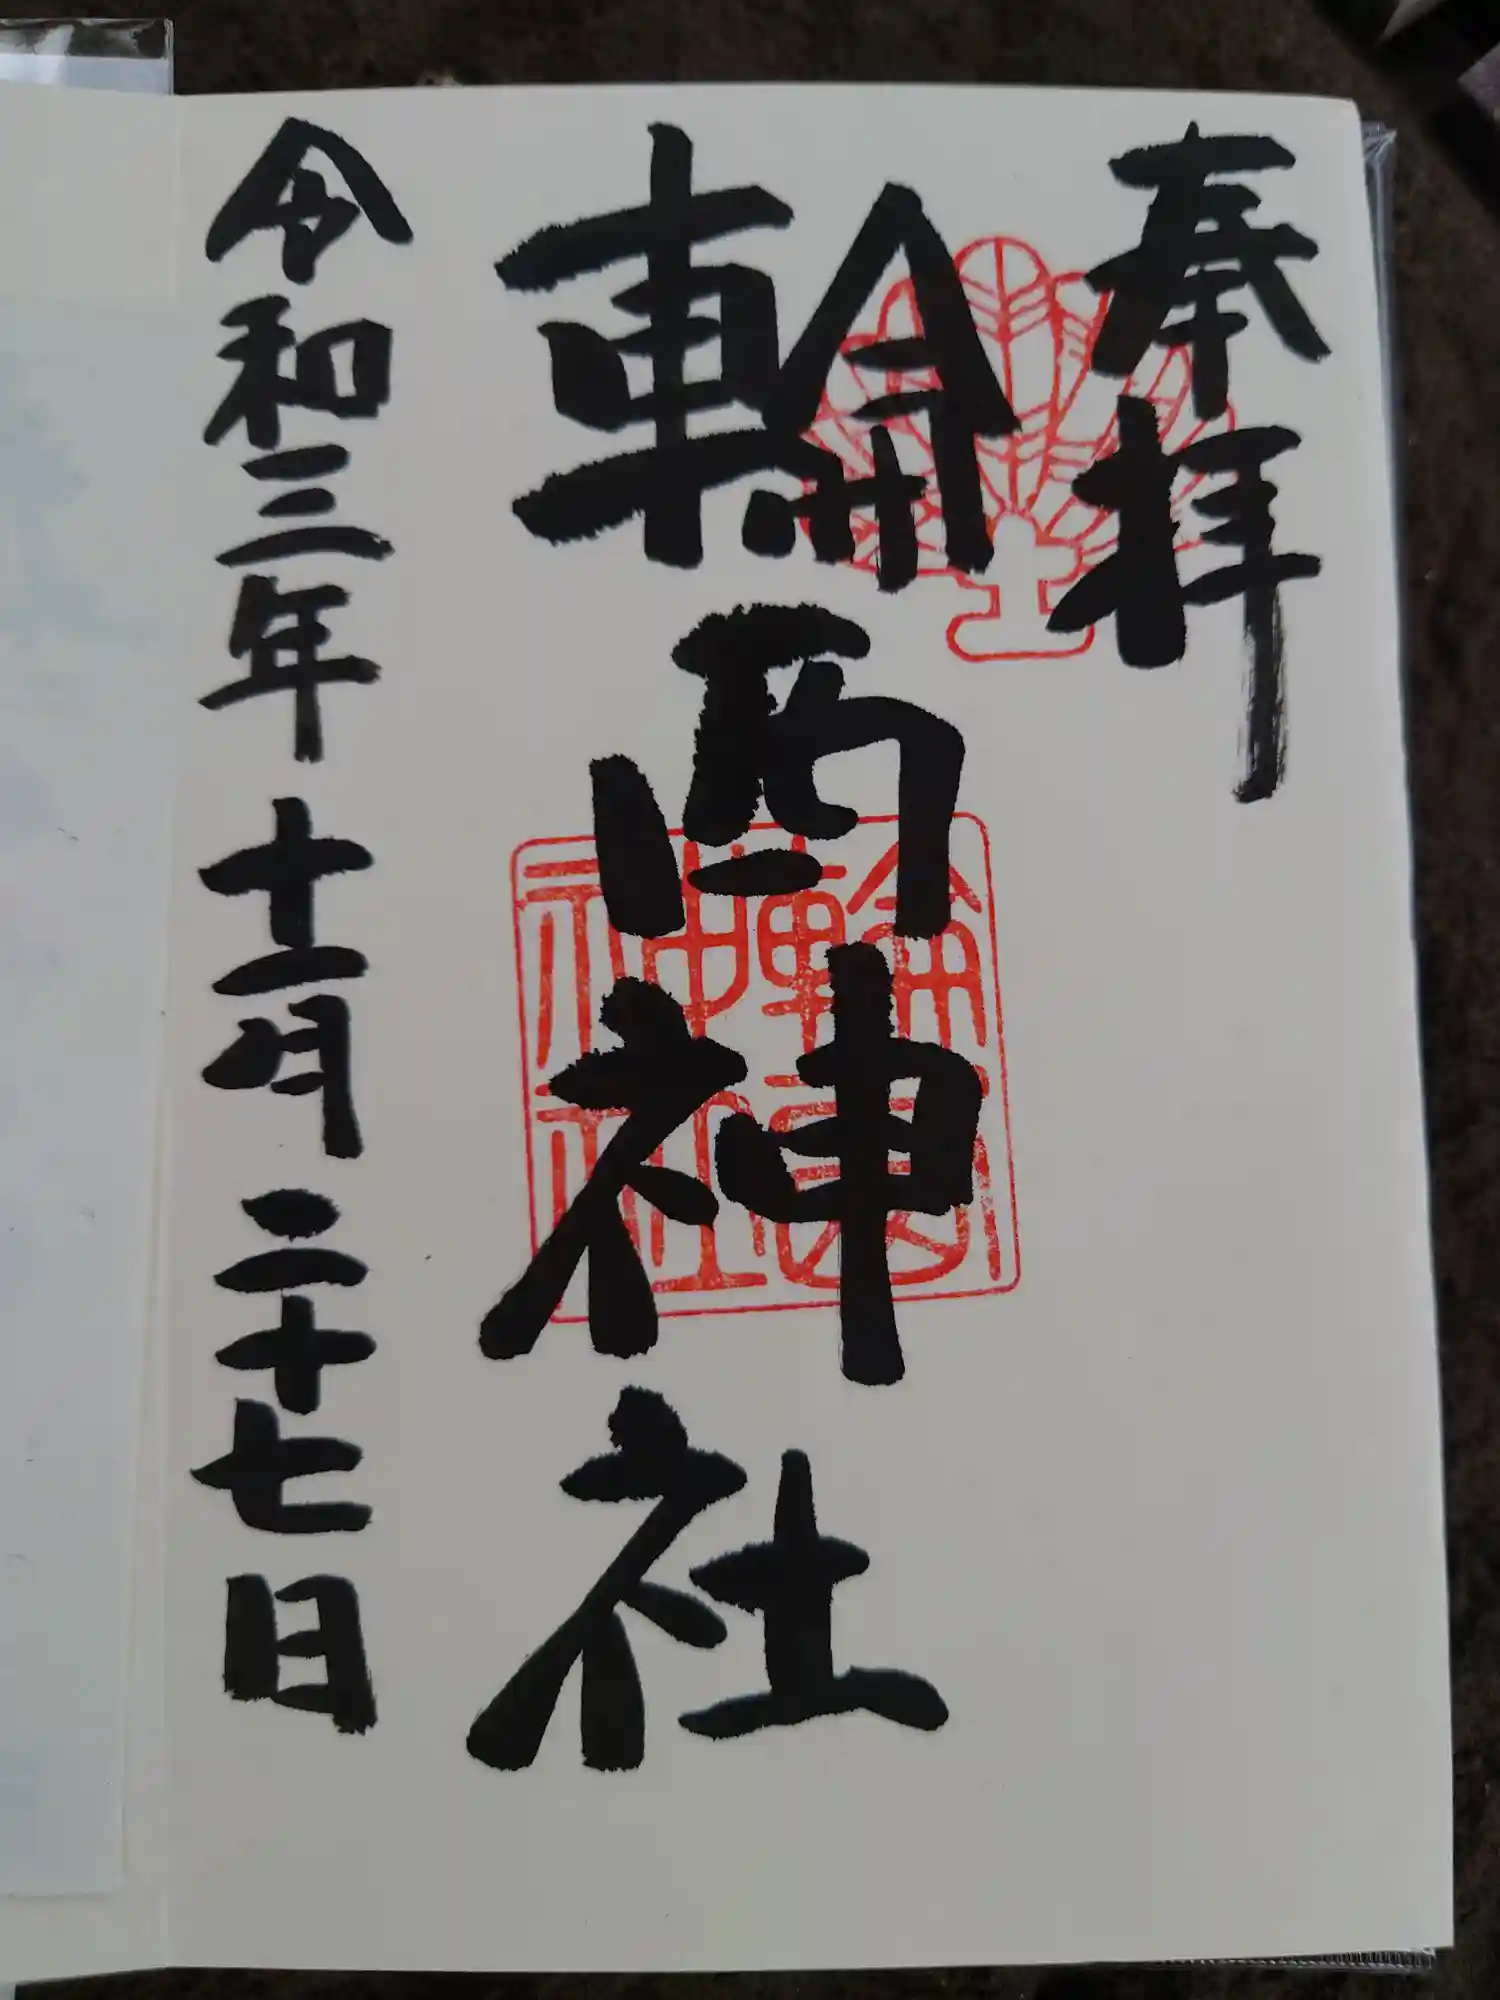 奉拝
輪西神社
輪西神社
令和三年十一月二十七日